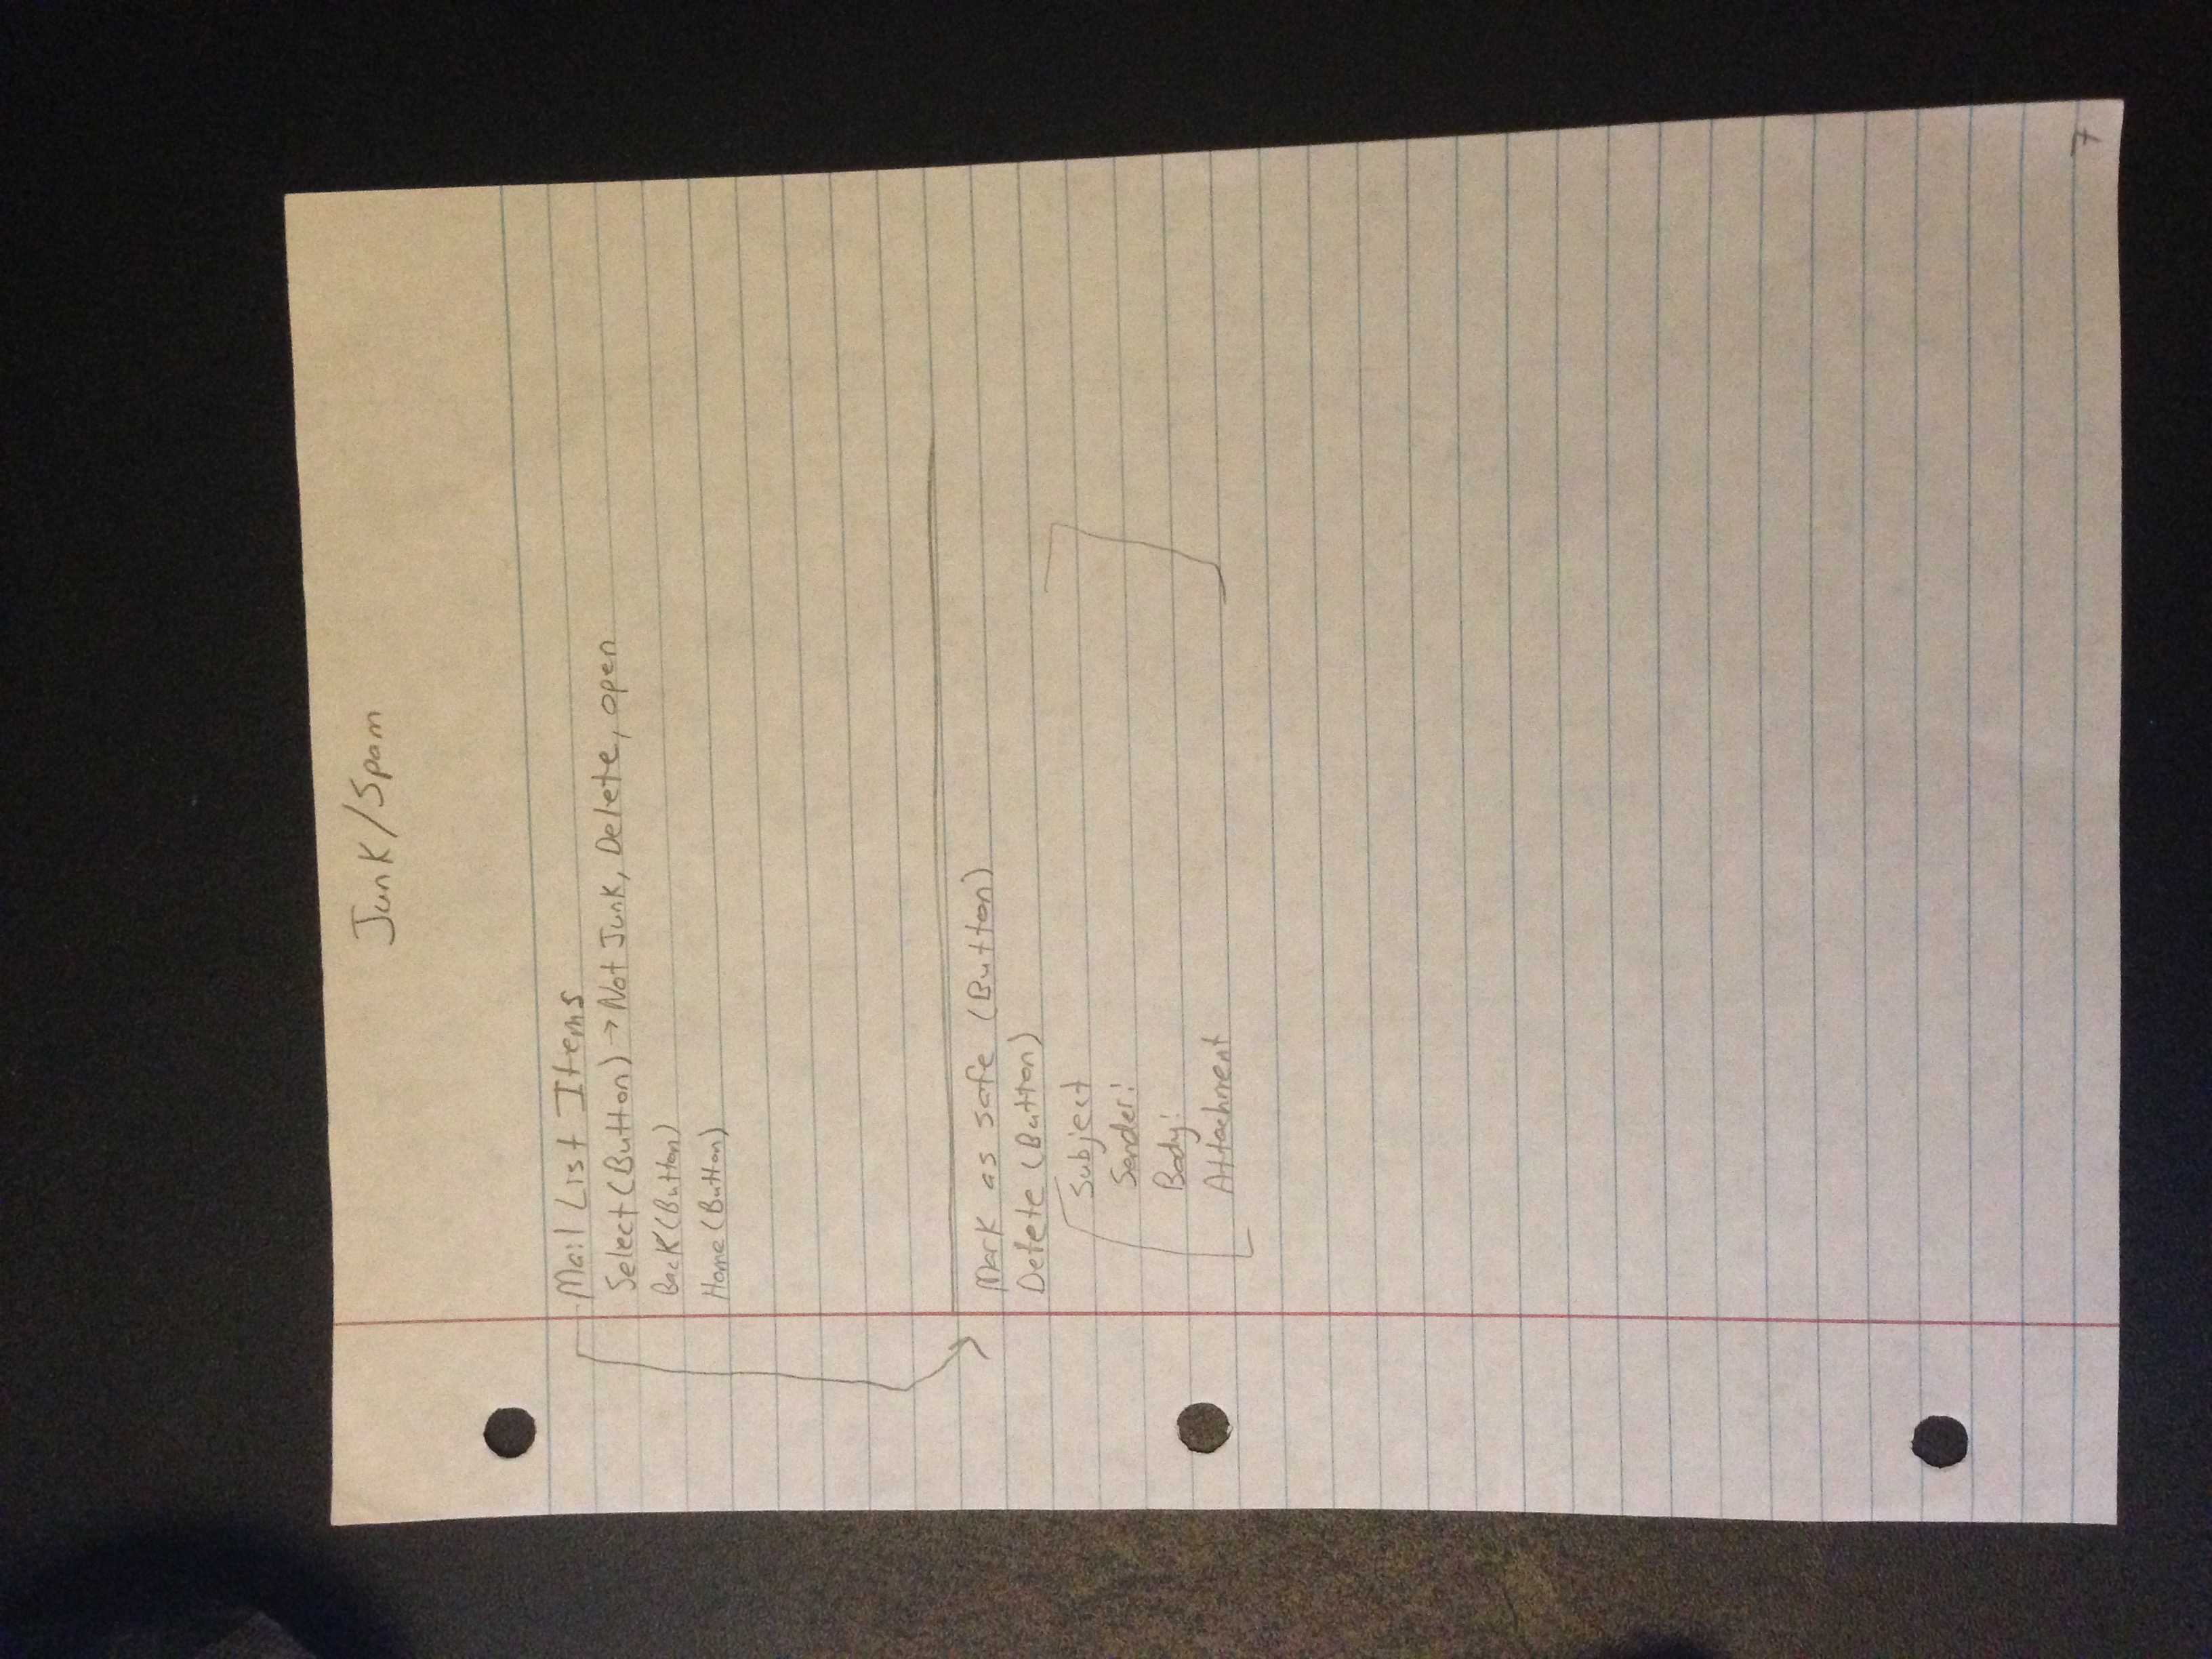 Junk/Spam
Mail List Items
Select (Button) → Not Junk, Delete, open
Back (Button)
Home (Button)
Mark as safe (Button)
Delete (Button)
Subject
Sender:
Body:
Attachment
7